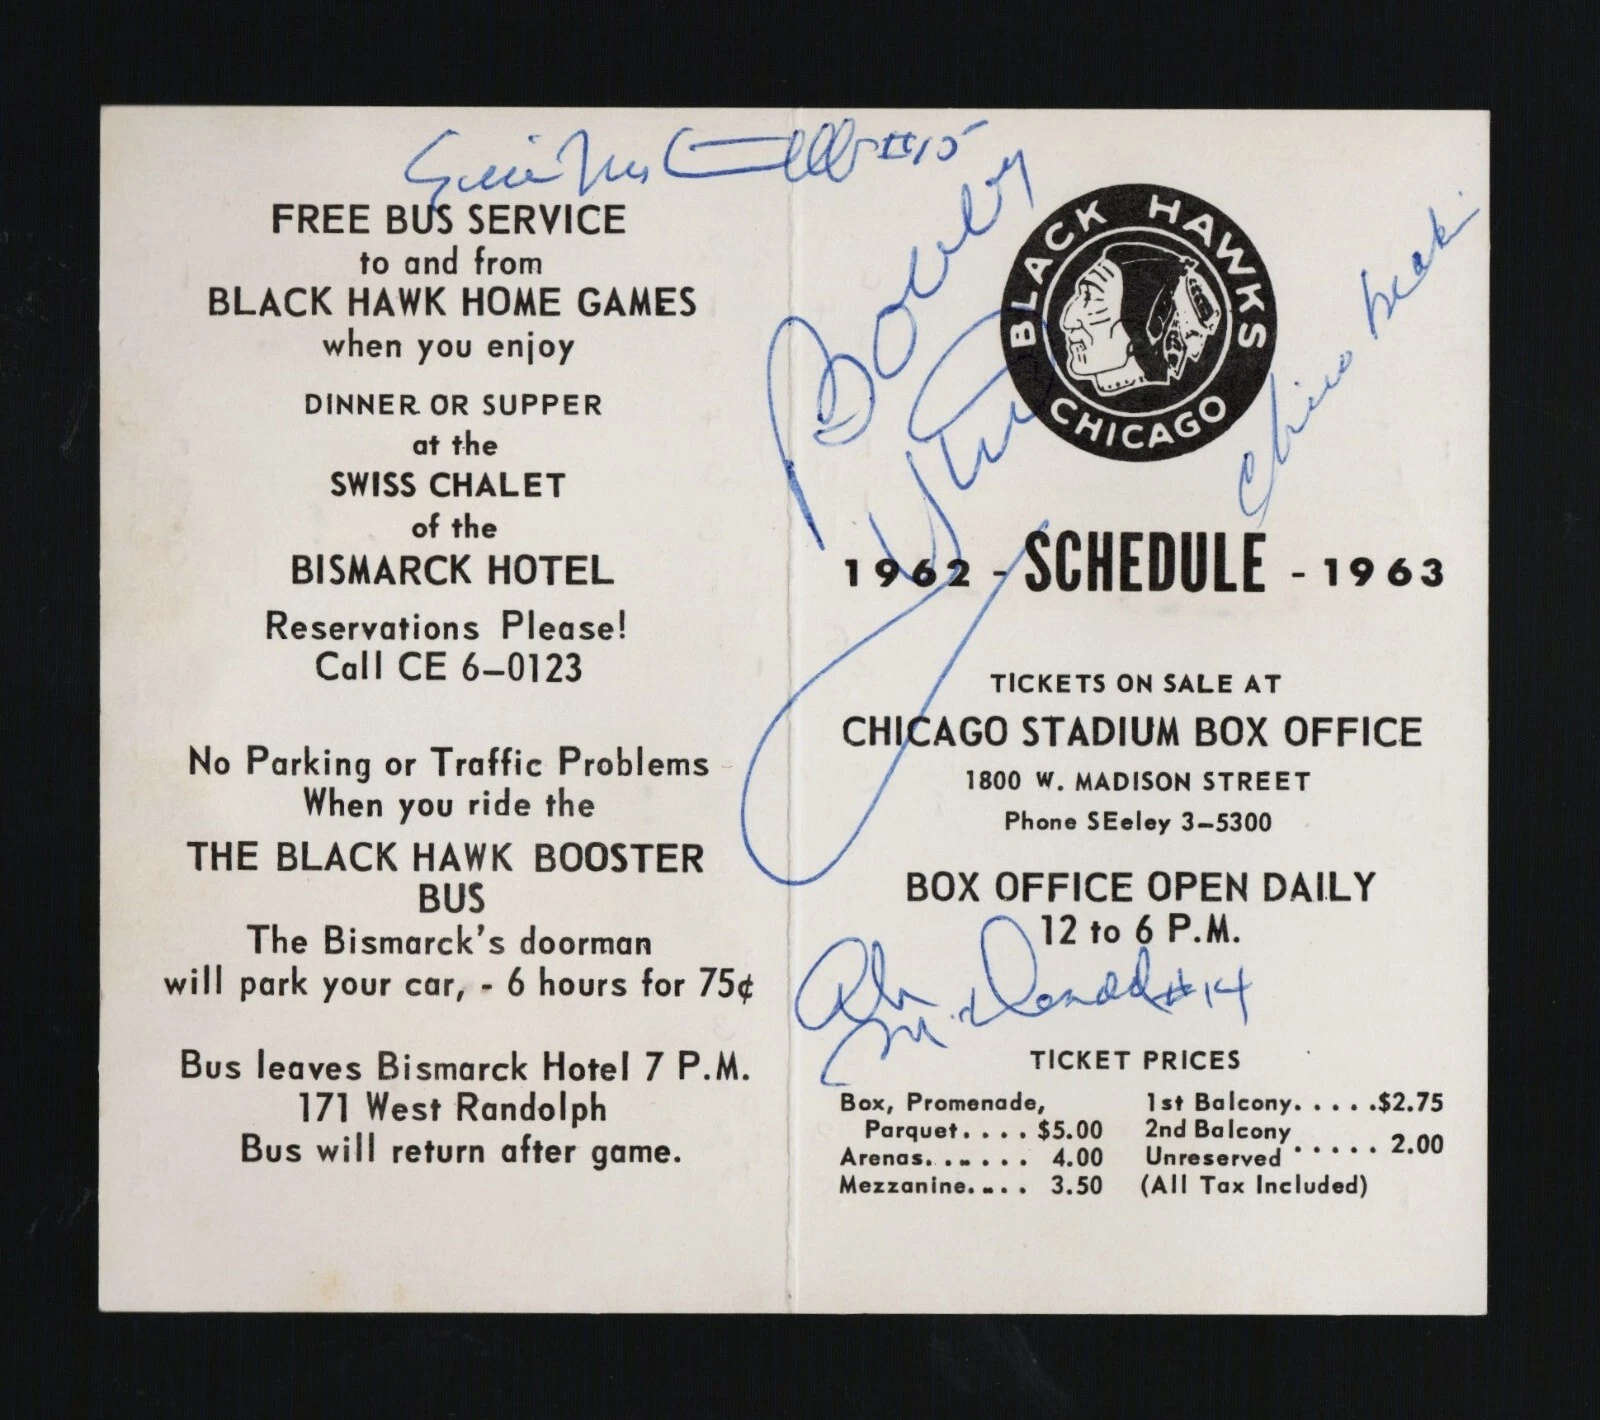 #15
FREE BUS SERVICE
to and from
BLACK HAWK HOME GAMES
when you enjoy
DINNER OR SUPPER
at the
SWISS CHALET
of the
BISMARCK HOTEL
Reservations Please!
Call CE 6-0123
No Parking or Traffic Problems
When you ride the
THE BLACK HAWK BOOSTER
BUS
The Bismarck's doorman
will park your car, - 6 hours for 75¢
Bus leaves Bismarck Hotel 7 P.M.
171 West Randolph
Bus will return after game.
Bobby Hull
BLACK HAWKS
CHICAGO
Chico Maki
1962 - SCHEDULE - 1963
TICKETS ON SALE AT
CHICAGO STADIUM BOX OFFICE
1800 W. MADISON STREET
Phone SEeley 3-5300
BOX OFFICE OPEN DAILY
12 to 6 P.M.
Ab McDonald #14
TICKET PRICES
Box, Promenade,
Parquet. . . . $5.00
Arenas. . . . . . . 4.00
Mezzanine. . . . . 3.50
1st Balcony. . . . .$2.75
2nd Balcony
Unreserved . . . . . 2.00
(All Tax Included)